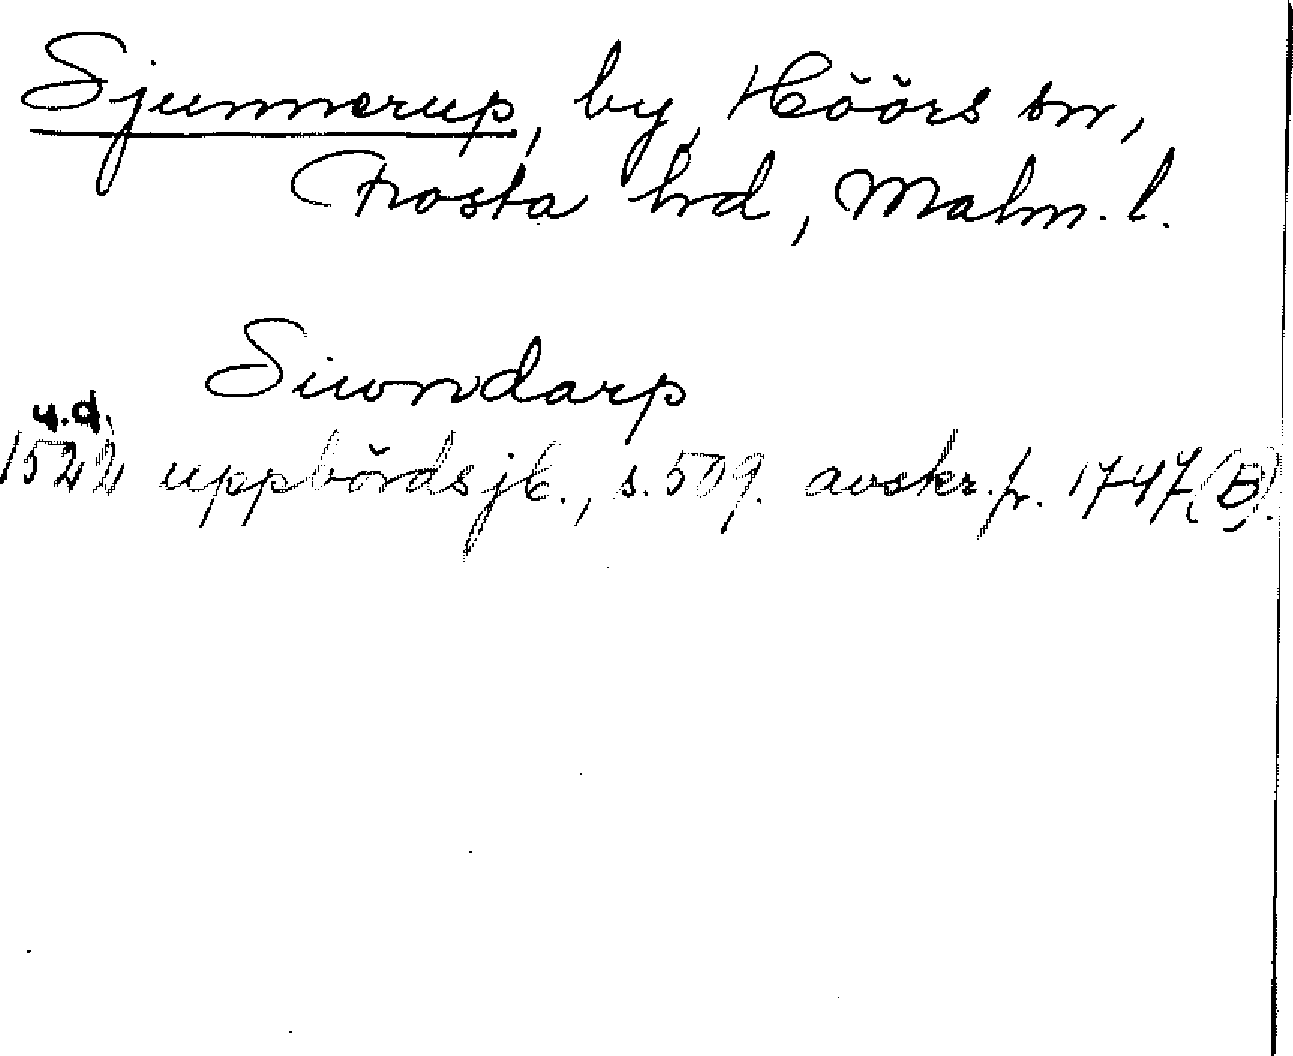 Sjunnerup, by, Höörs sn,
Frosta hd, Malm. l.
Siwndarp
u.d.
1522 uppbördsjb., s. 509. avskr. fr. 1747 (B).